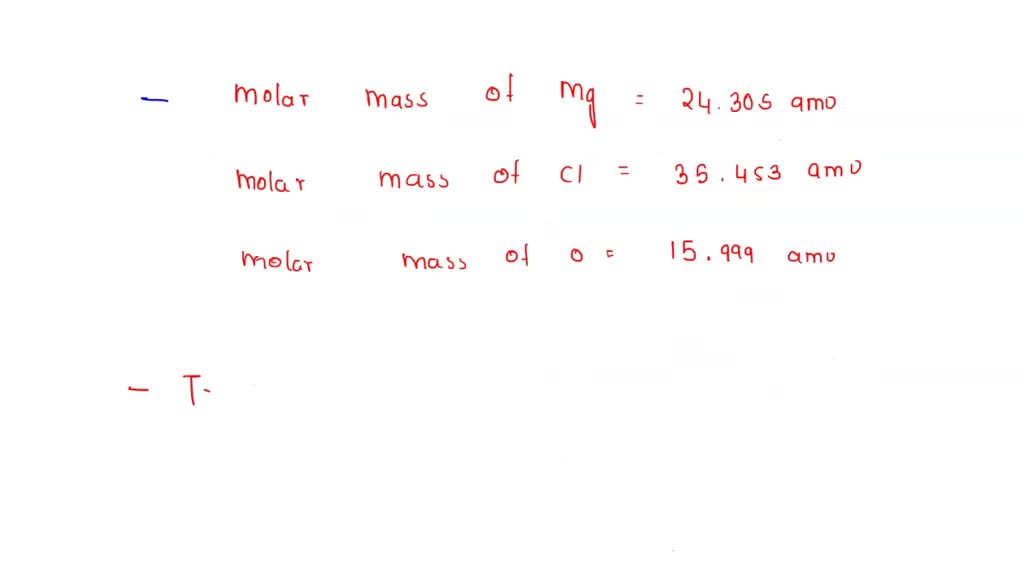 - molar mass of Mg = 24.305 amu
molar mass of Cl = 35.453 amu
molar mass of O = 15.999 amu
- T